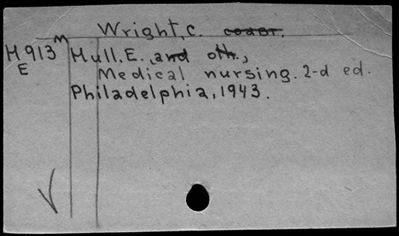 Wright, C. coaвт.
M913 m Hull, E., and oth.,
E Medical nursing. 2-d ed.
Philadelphia, 1943.